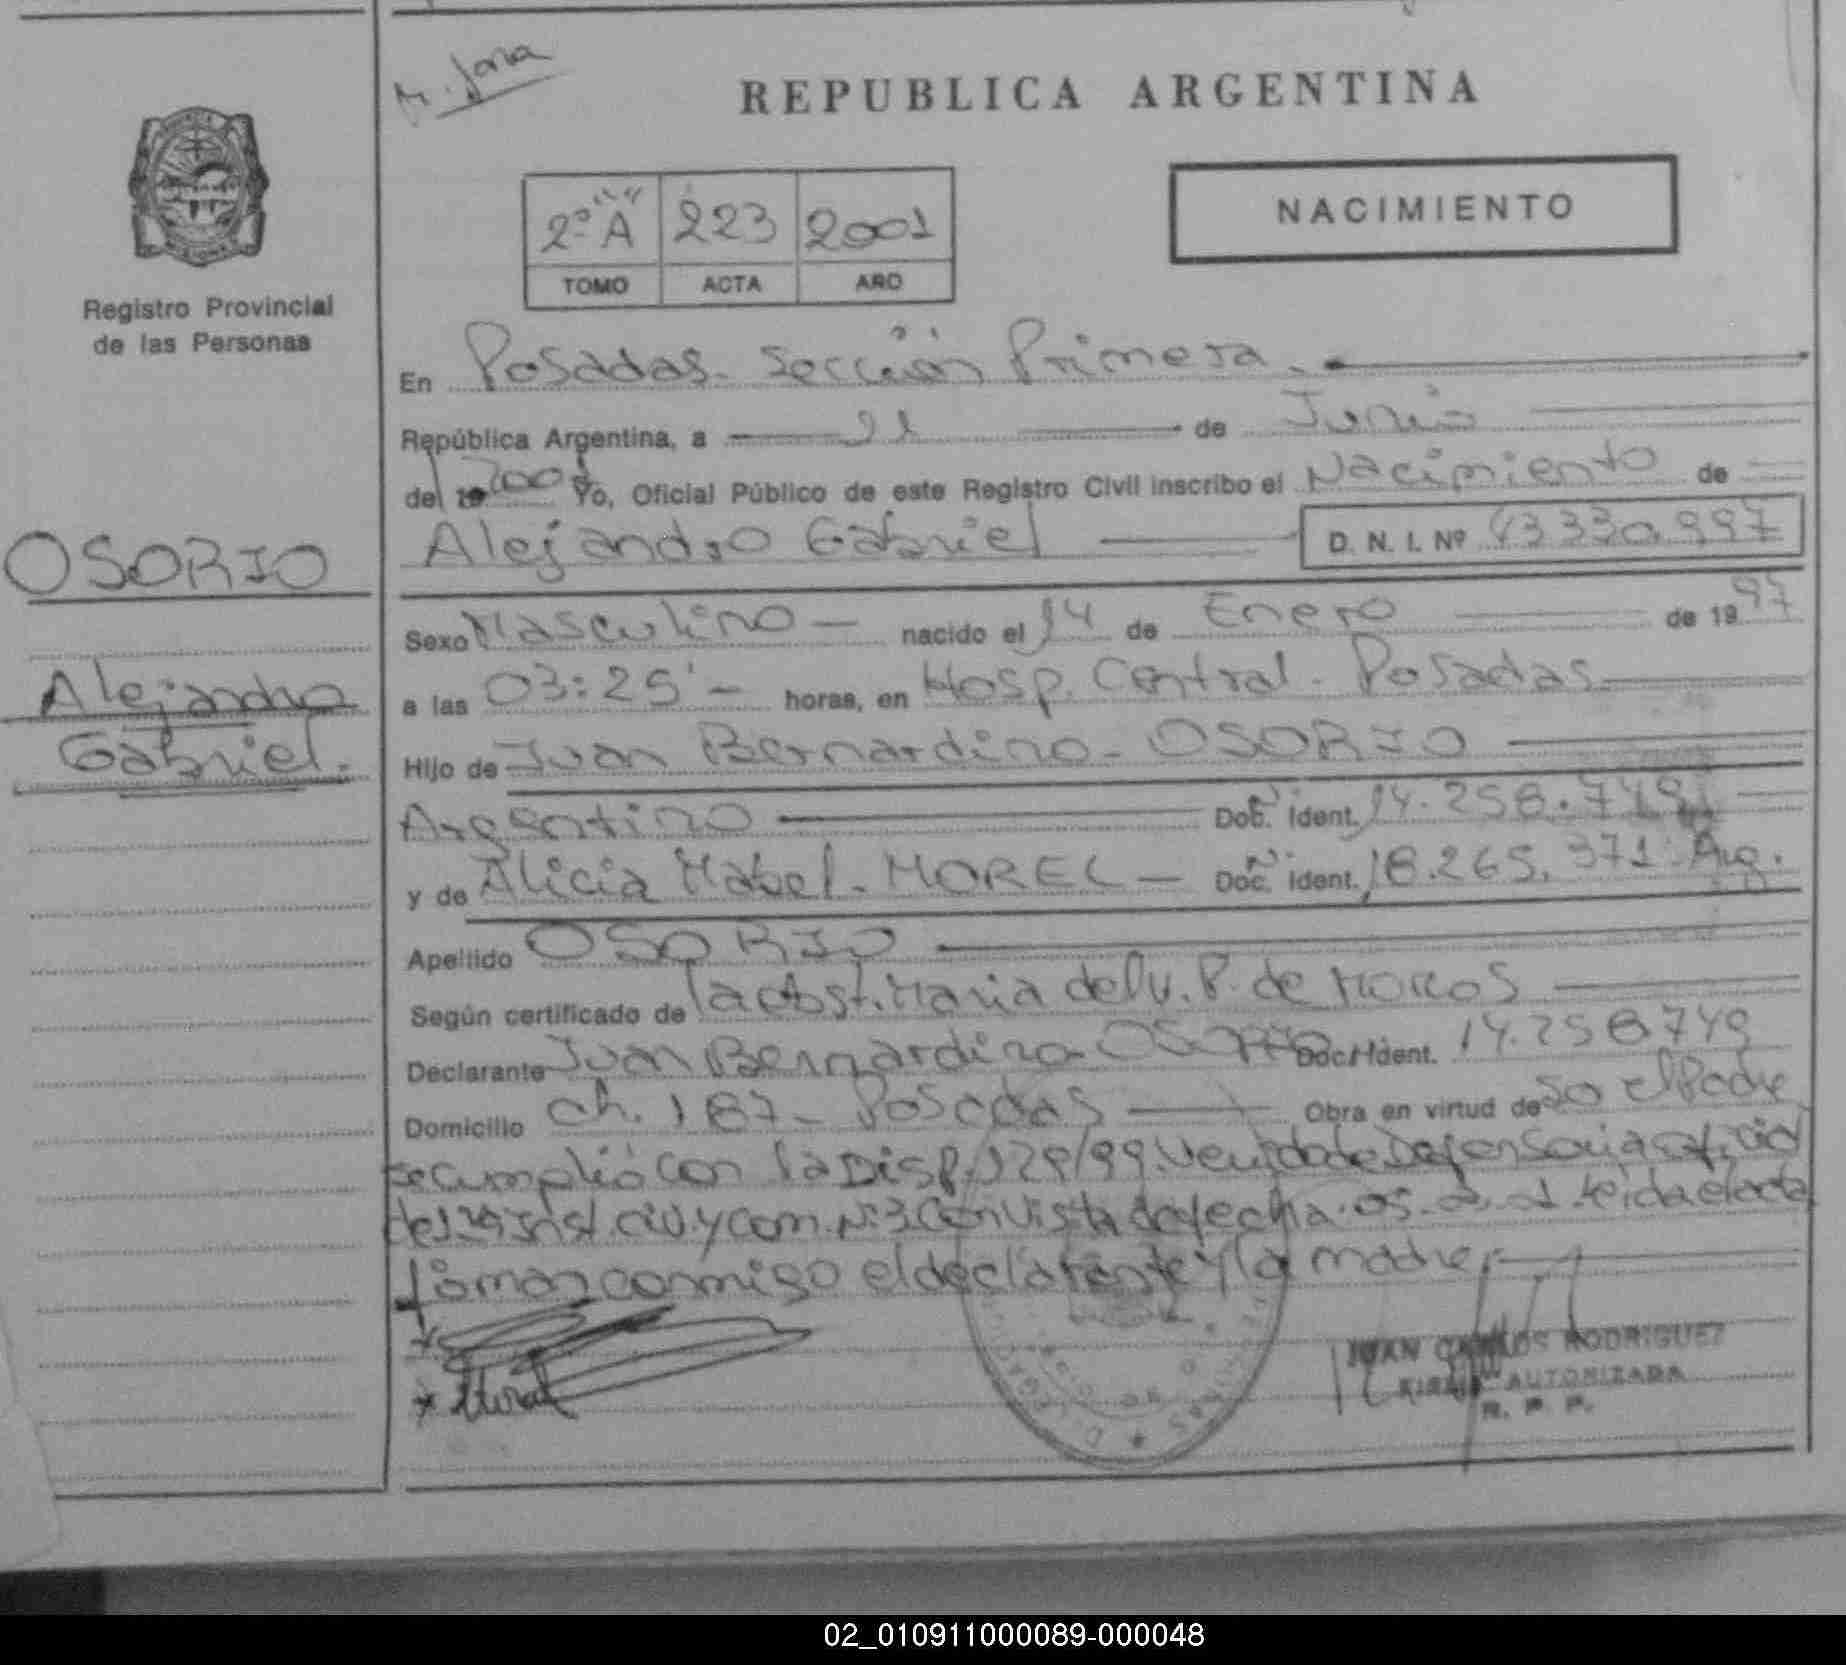 M. Jana
REPUBLICA ARGENTINA
NACIMIENTO
2º "A" 223 2001
TOMO ACTA AÑO
Registro Provincial
de las Personas
OSORIO
Alejandro
Gabriel.
En Posadas. Sección Primera.
República Argentina, a 21 de Junio
del 2001 Yo, Oficial Público de este Registro Civil inscribo el Nacimiento de
Alejandro Gabriel D. N. I. Nº 43330.997
Sexo Masculino nacido el 14 de Enero de 1997
a las 03:25' horas, en Hosp. Central. Posadas
Hijo de Juan Bernardino OSORIO
Argentino Doc. Ident. 14.258.749
y de Alicia Mabel. MOREL Doc. Ident. 18.265.371 Arg.
Apellido OSORIO
Según certificado de la obst. Maria del V. P. de Morcos
Declarante Juan Bernardino OSORIO Doc. Ident. 14.258749
Domicilio Ch. 187 - Posadas Obra en virtud de so el Padre
se cumplió con la Disp. 129/99. Defensoria oficial
de Inst. civ. y com. Nº 3 con vista de fecha 05. Leida el acta
firman conmigo el declarante y la madre.
Morel
JUAN CARLOS RODRIGUEZ
FIRMA AUTORIZADA
R. P. P.
02_010911000089-000048